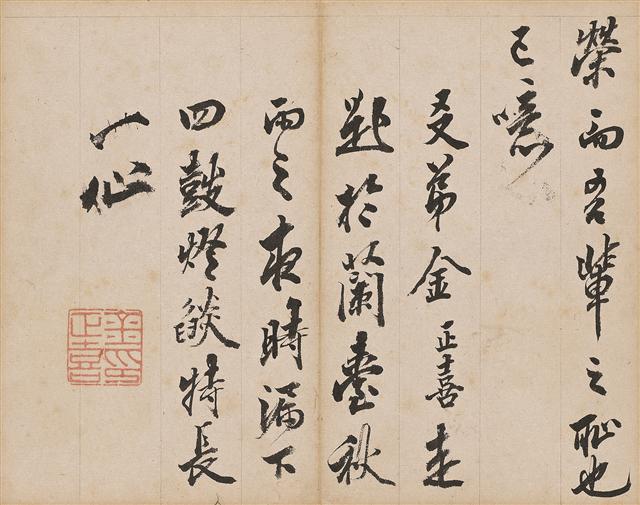 榮而吾輩之恥也
已噫
友弟金正喜走
於蘭臺秋
雨之夜時漏下
四鼓燈燄特長
一
金正喜印